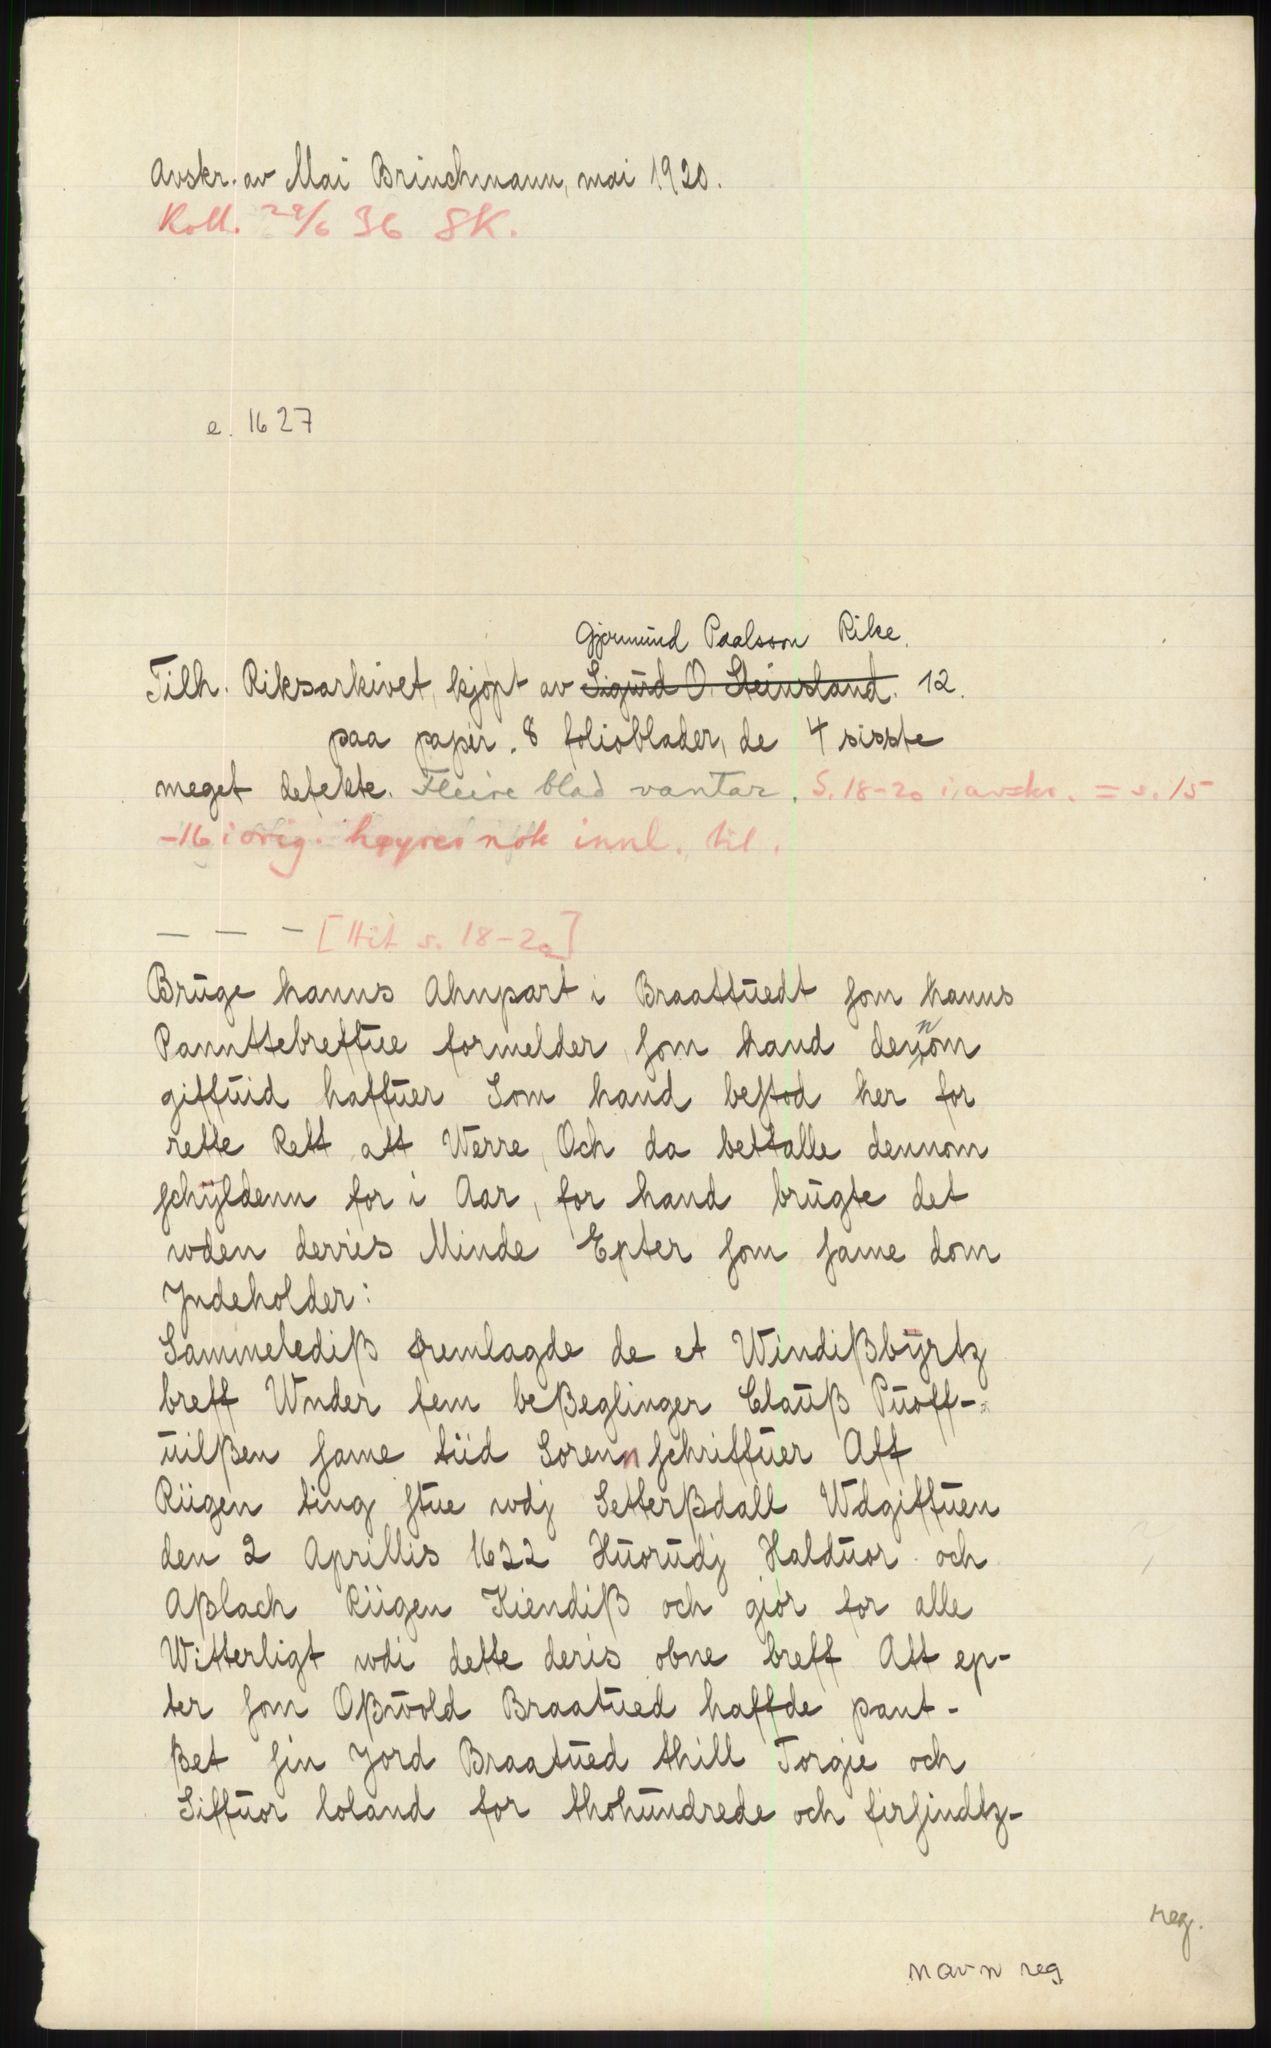 Avskr. av Mai Brinchmann, mai 1920.
Koll. 29/6 36 SK.
e. 1627
Gjermund Paalsson Rike.
Tilh. Riksarkivet, kjøpt av Sigurd O. Steinsland. 12.
paa papir. 8 folioblader, de 4 sisste
meget defekte. Fleire blad vantar. S. 18-20 i avskr. = s. 15
-16 i orig. høyrer nok innl. til.
— — — [Hit s. 18-20]
Brüge hanns Ahnpart i Braattüedt som hanns
Pannttebreffüe formelder, som hand dennom
giffüid haffüer Som hand bestod her for
rette Rett att Werre, Och da bettalle dennom
schÿldenn for i Aar, for hand brügte det
wden derris Minde Epter som same dom
Jndeholder:
Sammelediß fremlagde de et Windißbÿrtz
breff Wnder fem beßeglinger Clauß Püoff-
üilßen same tiid Sorenn schriffüer Att
Riigen ting stue wdj Setterßdall Wdgiffüen
den 2 Aprillis 1622 Hüorüdj Haldüor och
Aßlach Riigen Kiendiß och giør for alle
Witterligt wdi dette deris obne breff Att ep-
ter som Oßwold Braatüed haffde pant-
ßet sin Jord Braatüed thill Torgie och
Siffüor loland for thohundrede och firsindtz-
reg.
navn reg